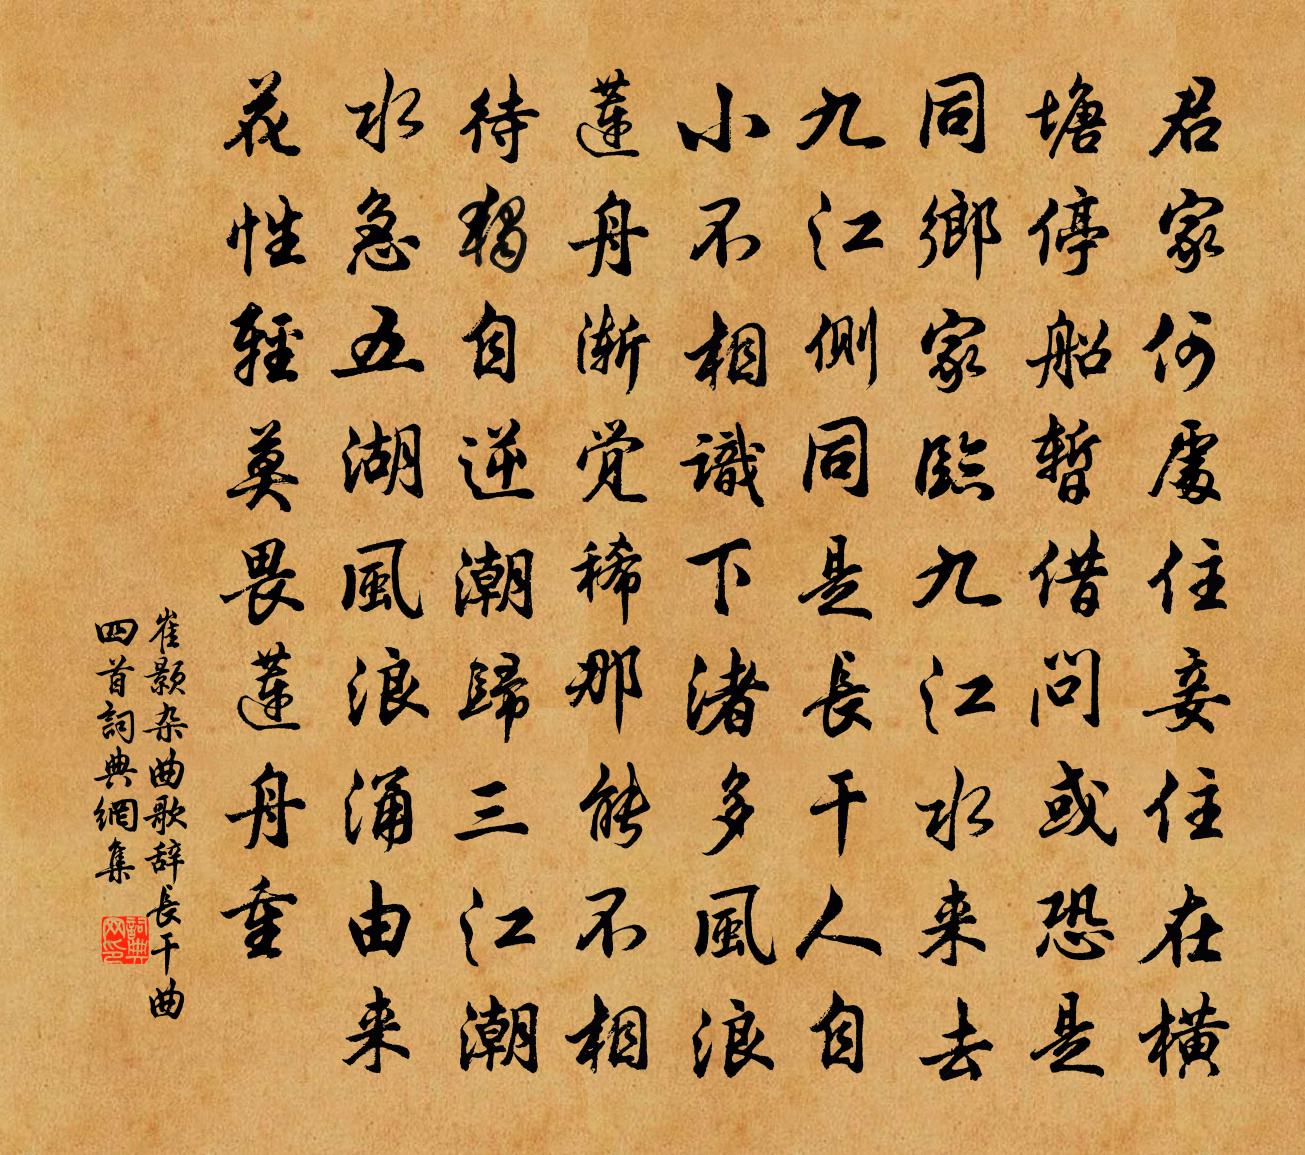 君家何處住妾住在橫
塘停船暫借問或恐是
同鄉家臨九江水来去
九江側同是長干人自
小不相識下渚多風浪
蓮舟漸覚稀那能不相
待獨自逆潮歸三江潮
水急五湖風浪涌由来
花性輕莫畏蓮舟重
崔顥杂曲歌辞長干曲
四首詞典網集
詞典
网印